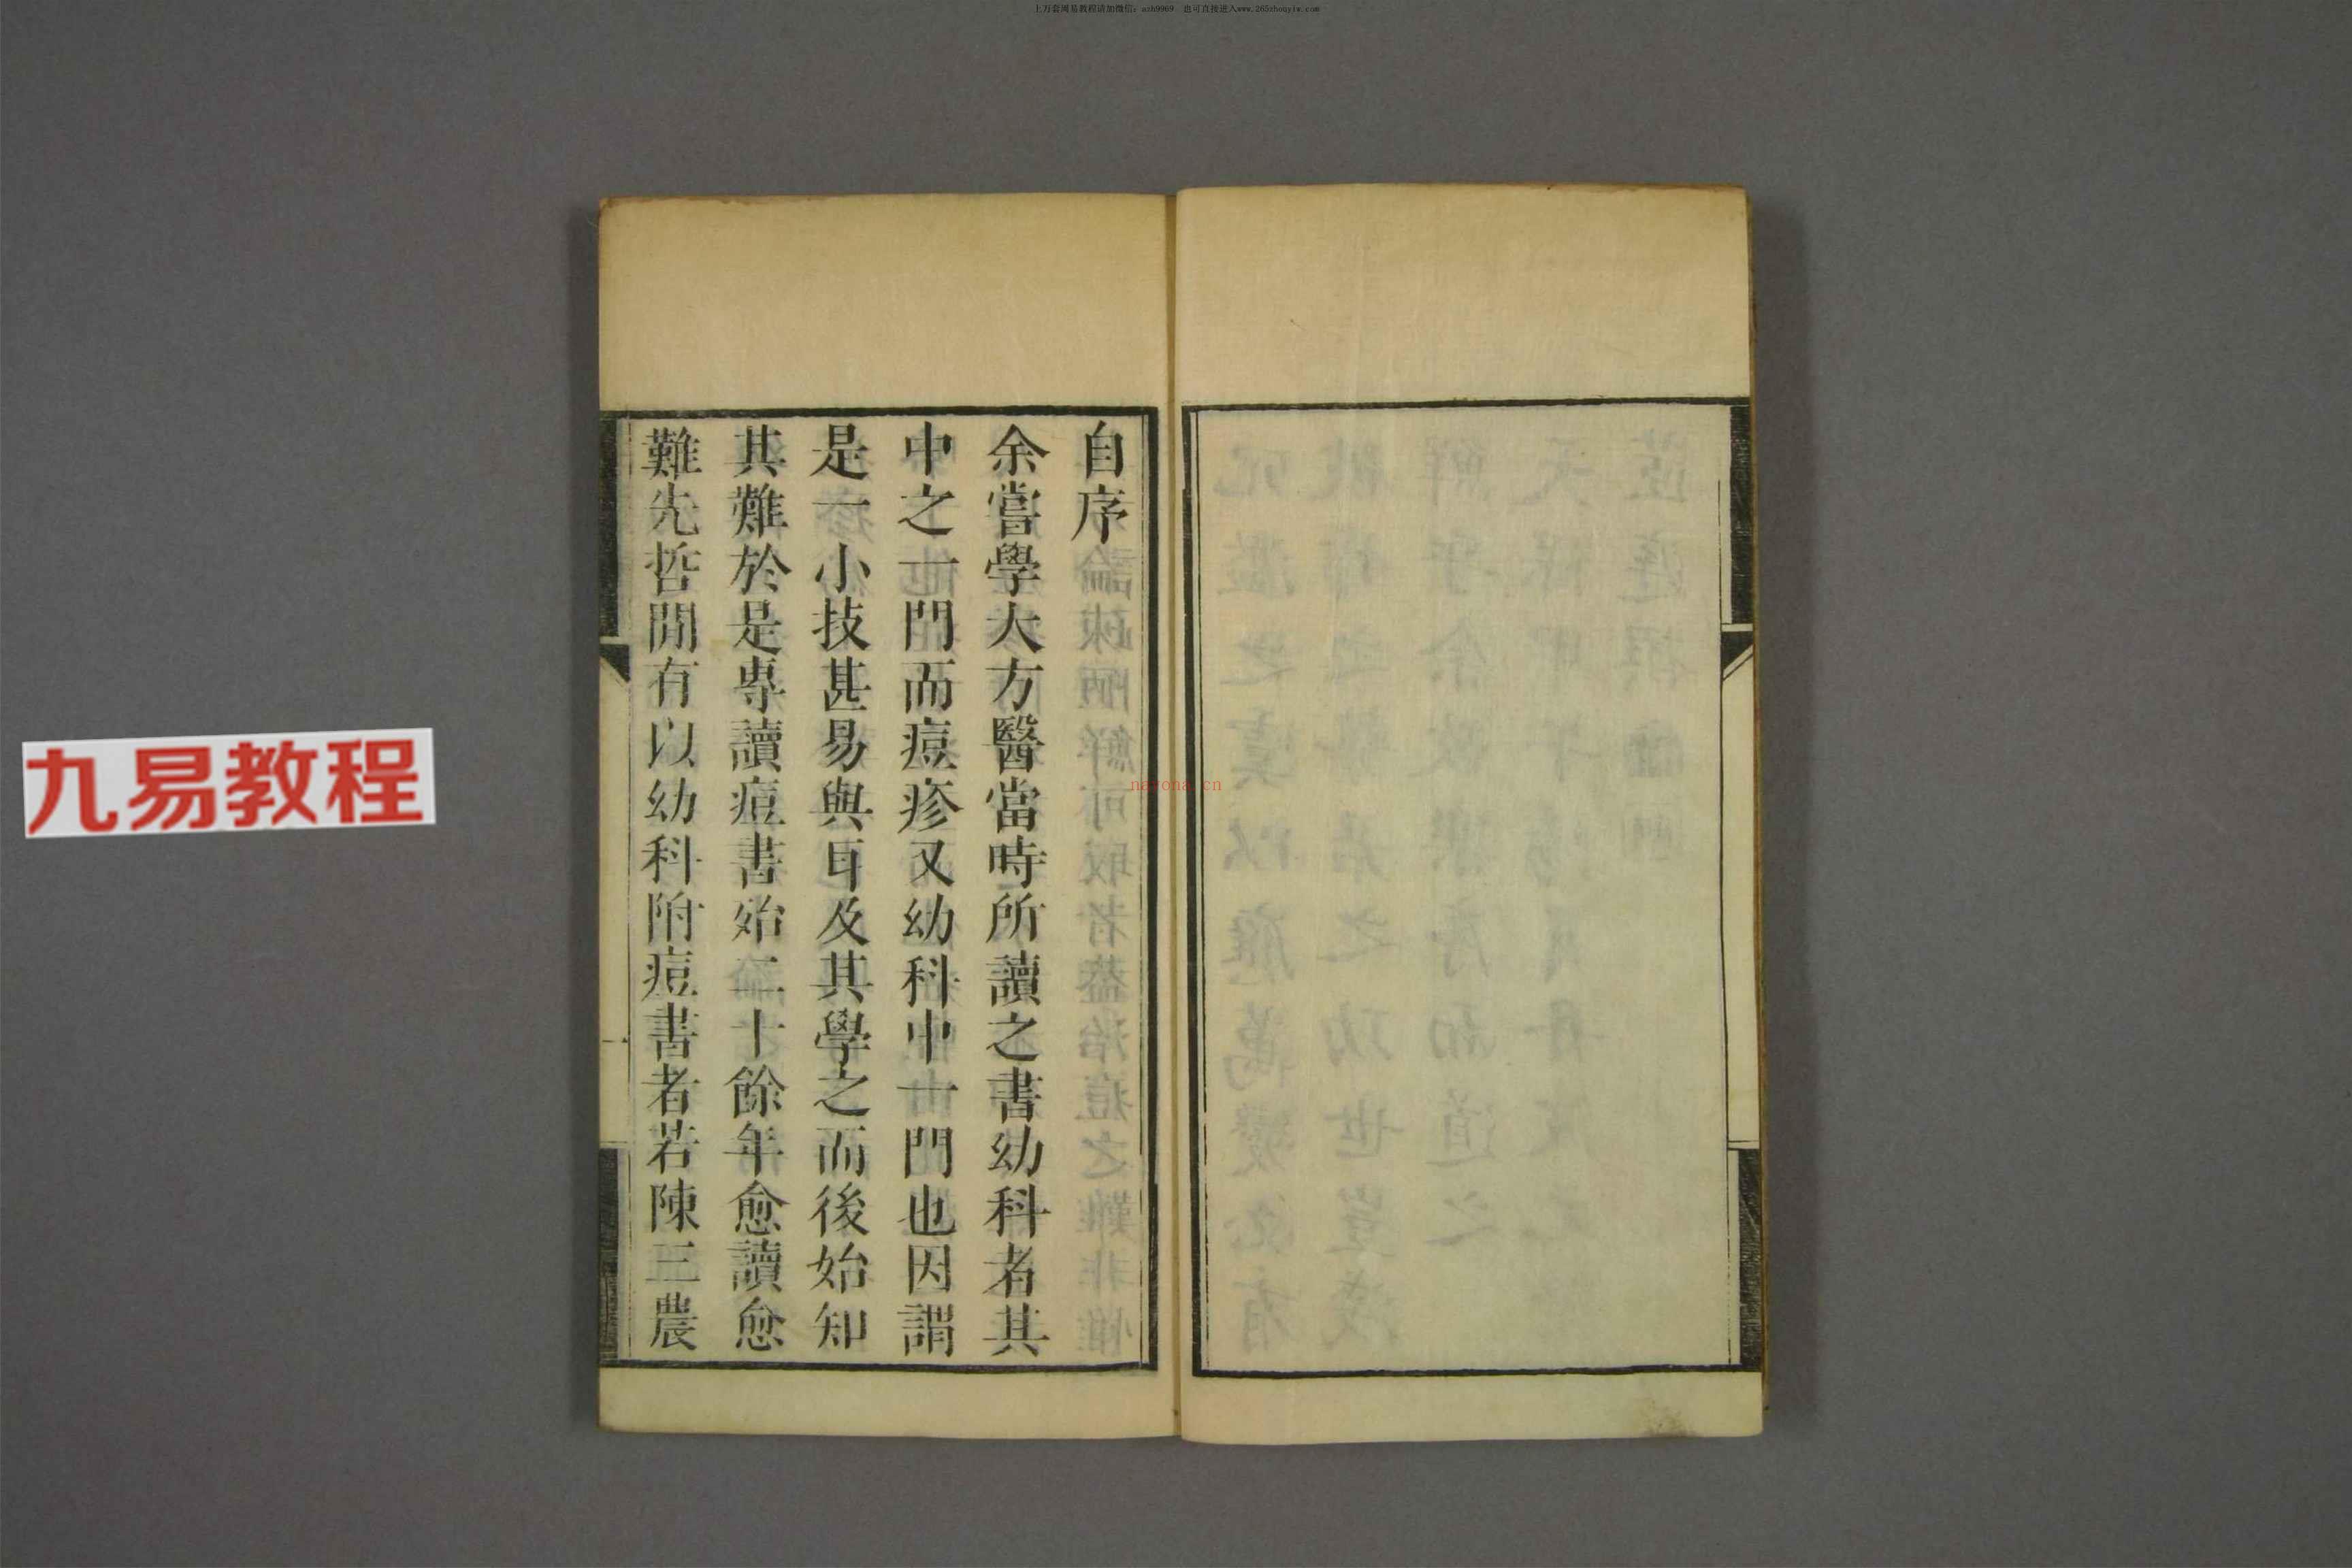 上万套周易教程请加微信：azh9969 也可直接进入www.265zhouyiw.com
自序
余嘗學大方醫當時所讀之書幼科者其
中之一門而痘疹又幼科中一門也因謂
是一小技甚易與耳及其學之而後始知
其難於是專讀痘書殆二十餘年愈讀愈
難先哲閒有以幼科附痘書者若陳三農
九易教程
nayona.cn